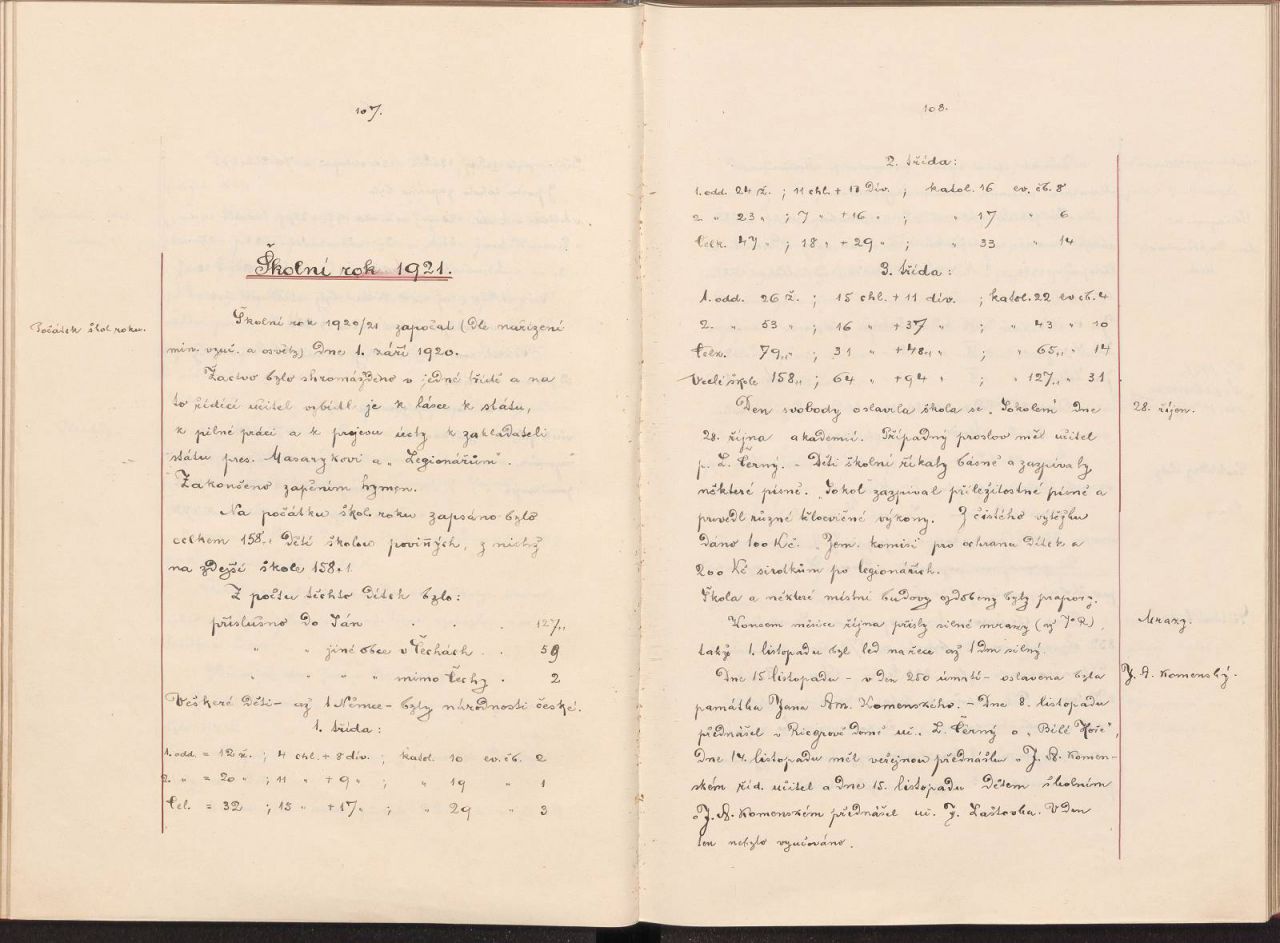 107.
Školní rok 1921.
Počátek škol. roku.
Školní rok 1920/21 započal (dle nařízení
min. vyuč. a osvěty) dne 1. září 1920.
Žactvo bylo shromážděno v jedné třídě a na
to řídící učitel vybídl je k lásce k státu,
k pilné práci a k projevu úcty k zakladateli
státu pres. Masarykovi a „Legionářům".
Zakončeno zapěním hymen.
Na počátku škol. roku zapsáno bylo
celkem 158 dětí školou povinných, z nichž
na zdejší škole 158+1.
Z počtu těchto dítek bylo:
příslušno do Ján . . . 127„
„ „ jiné obce v Čechách . . 59
„ „ „ „ mimo Čechy . 2
Veškeré děti - až 1 Němce - byly národnosti české.
1. třída:
1. odd. = 12 ž. ; 4 chl. + 8 dív. ; katol. 10 ev. čb. 2
2. „ = 20 „ ; 11 „ + 9 „ ; „ 19 „ 1
Cel. = 32 ; 15 „ + 17 „ ; „ 29 „ 3
108.
2. třída:
1. odd. 24 ž. ; 11 chl. + 13 dív. ; katol. 16 ev. čb. 8
2. „ 23 „ ; 7 „ + 16 „ ; „ 17 „ 6
Celk. 47 „ ; 18 „ + 29 „ ; „ 33 „ 14
3. třída:
1. odd. 26 ž. ; 15 chl. + 11 dív. ; katol. 22 ev. čb. 4
2. „ 53 „ ; 16 „ + 37 „ ; „ 43 „ 10
Celk. 79„ „ ; 31 „ + 48„ „ ; „ 65„ „ 14
V celé škole 158„ ; 64 „ + 94 „ ; „ 127„ „ 31
Den svobody oslavila škola se „Sokolem" dne
28. říjen.
28. října akademií. Případný proslov měl učitel
p. L. Černý. - Děti školní říkaly básně a zazpívaly
některé písně. „Sokol" zazpíval příležitostné písně a
provedl různé tělocvičné výkony. Z čistého výtěžku
dáno 100 Kč. „Zem. komisi" pro ochranu dítek a
200 Kč sirotkům po legionářích.
Škola a některé místní budovy ozdobeny byly prapory.
Koncem měsíce října přišly silné mrazy (až 7° R),
Mrazy.
takže 1. listopadu byl led na řece až 1 dm silný.
Dne 15 listopadu - v den 250 úmrtí - oslavena byla
J. A. Komenský.
památka Jana Am. Komenského. - Dne 8. listopadu
přednášel v Riegrově domě uč. L. Černý o „Bílé Hoře",
Dne 14. listopadu měl veřejnou přednášku o J. A. Komen-
ském říd. učitel a dne 15. listopadu dětem školním
o J. A. Komenském přednášel uč. J. Laštovka. V den
ten nebylo vyučováno.